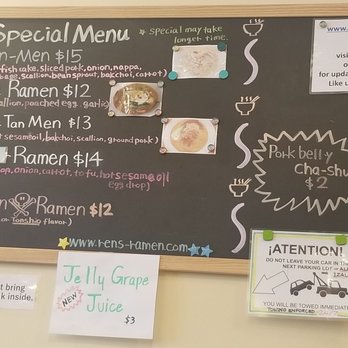 Special Menu
*Special may take
longer time.
-Men $15
fish cake, sliced pork, onion, nappa,
scallion, bean sprout, bakchoi, carrot)
Ramen $12
poached egg, garlic)
Tan Men $13
sesame oil, bakchoi, scallion, ground pork)
Ramen $14
onion, carrot, tofu, hot sesame oil
egg drop)
Ramen $12
Tonshio flavor)
www.rens-ramen.com
Pork belly
Cha-shu
$2
Jelly Grape
Juice
NEW
$3
www.
visi
for upda
Like u
t bring
k inside.
¡ATENCIÓN!
DO NOT LEAVE YOUR CAR IN THE
NEXT PARKING LOT
YOU WILL BE TOWED IMMEDIATE
TOWING ENFORCED